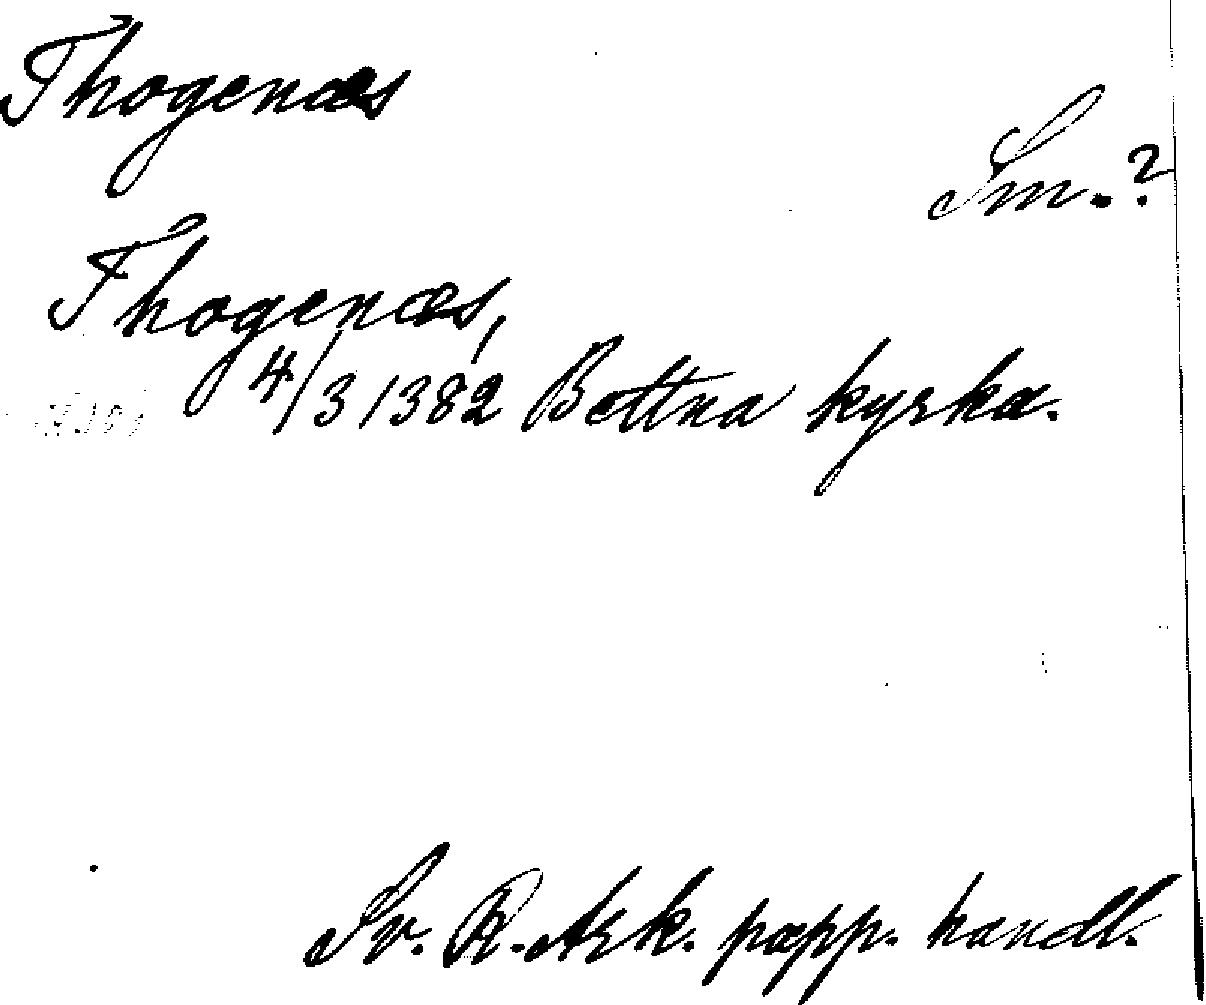 Thogenæs
Sm.?
Thogenæs,
4/3 1382 Bettna kyrka.
Sv. R. Ark. papp. handl.